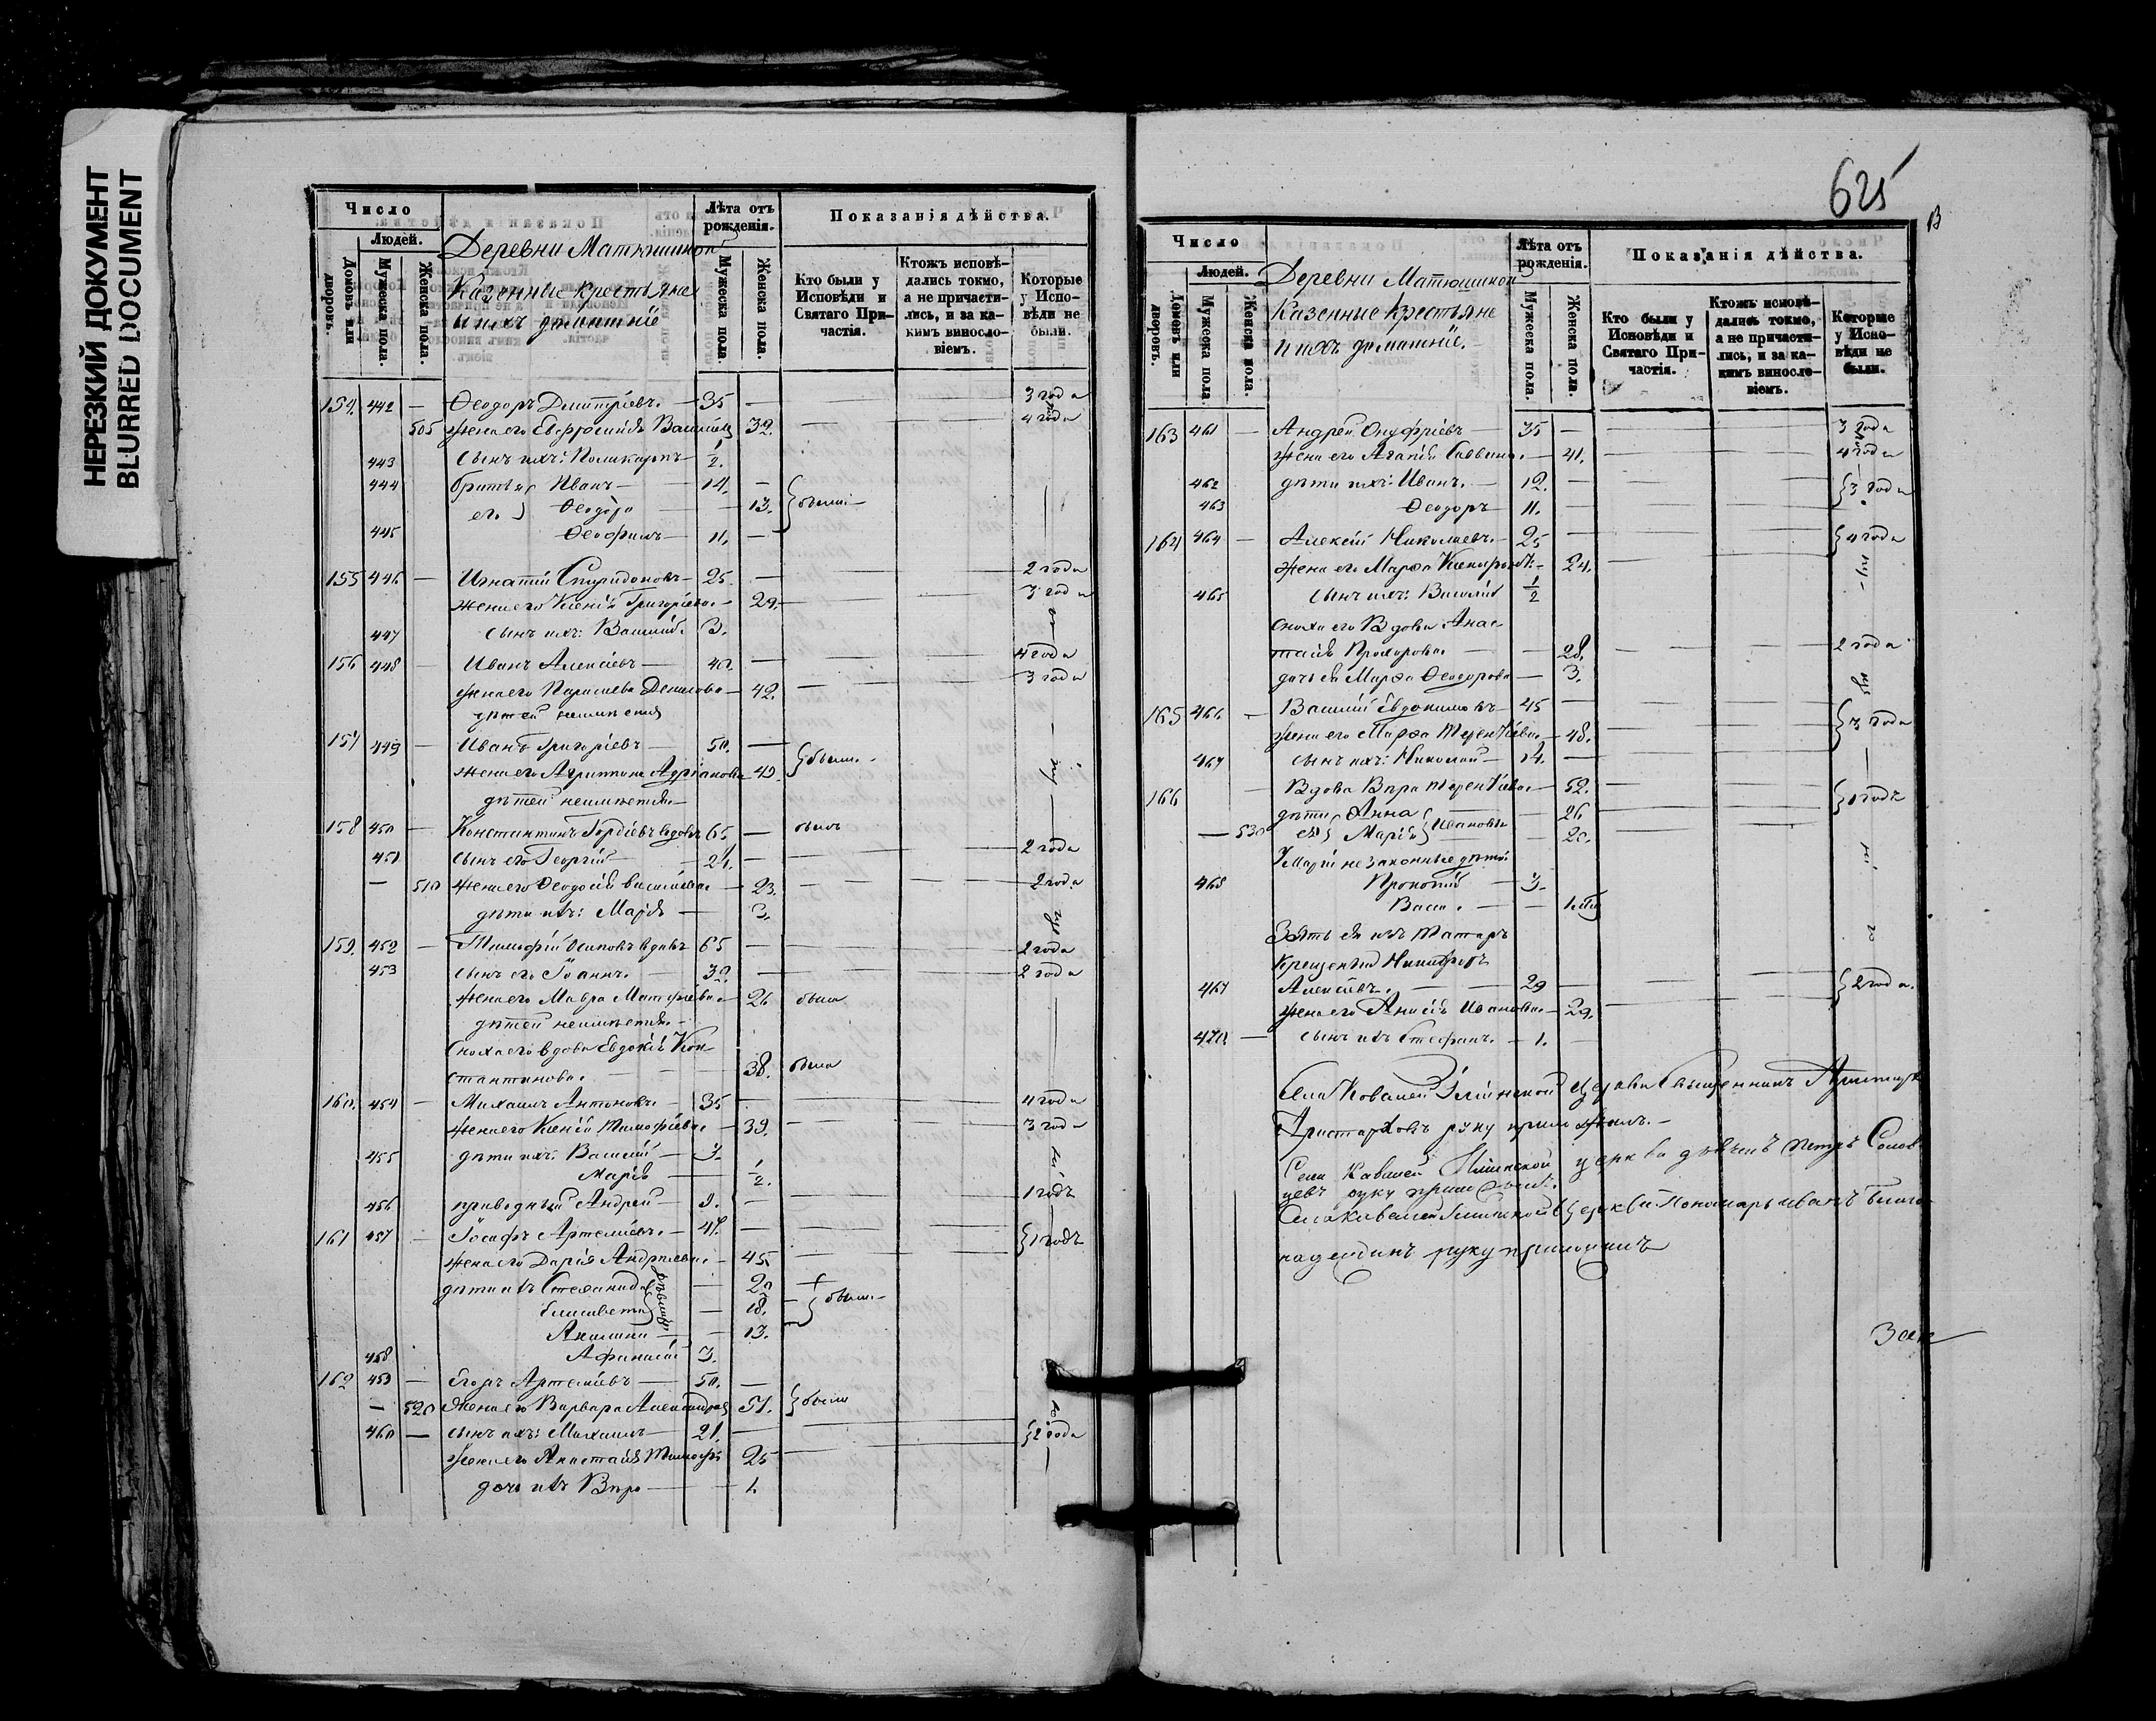 НЕРЕЗКИЙ ДОКУМЕНТ
BLURRED DOCUMENT
Число
Людей.
Домовъ или дворовъ.
Мужеска пола.
Женска пола.
Деревни Матюшиной
Казенные крестьяне
и ихъ домашніе
Лѣта отъ рожденія.
Мужеска пола.
Женска пола.
Показанія дѣйства.
Кто были у Исповѣди и Святаго Причастія.
Ктожъ исповѣдались токмо, а не причастились, и за какимъ винословіемъ.
Которые у Исповѣди не были.
154. 442 — Ѳеодоръ Дмитріевъ. — 35 — 3 года
505 жена его Евфросинія 32. — 4 года
443 сынъ ихъ: Поликарпъ 1/2.
444 братья Иванъ — 14. —
его Ѳеодора — 13. были
445 Ѳеофилъ — 11. —
155 446 — Игнатій Спиридоновъ — 25. — 2 года
жена его Ксенія Григорьева. — 29. — 3 года
447 сынъ ихъ: Василій. 3.
156 448 — Иванъ Алексѣевъ — 40. — 4 года
жена его 42. — 3 года
дѣтей неимѣетъ
157 449 — Иванъ Григорьевъ — 50. —
жена его Агриппина Адріанова 49. были.
дѣтей неимѣетъ
158 450 — Константинъ Гордѣевъ вдовъ 65 — былъ
451 сынъ его Георгій — 24. — 2 года
— 510 жена его Ѳеодосія Васильева — 23. — 2 года
дѣти ихъ: Марія — 3.
159. 452 — Тимофій Осиповъ вдовъ 65 — 2 года
453 сынъ его Іоаннъ. — 30 — 2 года
жена его Мавра Матфіева 26 была
дѣтей неимѣетъ
Сноха его вдова Евдокія Кон-
стантинова. — 38. была
160. 454 — Михаилъ Антоновъ. — 35 — 4 года
жена его Ксенія Тимофіева — 39. — 3 года
455 дѣти ихъ: Василій — 3.
Марія — 1/2.
456 приводный Андрей — 9. — 1 годъ
161 457 — Іосифъ Артеміевъ. — 47. — 1 годъ
жена его Дарія Андреева — 45
дѣти ихъ Стефанида — 20
Елисавета — 18. были
Акилина — 13.
458 Афанасій 3.
162 459 — Егоръ Артеміевъ — 50. —
— 520 Жена его Варвара 51. были
460 — сынъ ихъ: Михаилъ — 21. — 2 года
жена его Анастасія 25
дочь ихъ Вѣра — 1.
625
Число
Людей.
Домовъ или дворовъ.
Мужеска пола.
Женска пола.
Деревни Матюшиной
Казенные крестьяне
и ихъ домашніе.
Лѣта отъ рожденія.
Мужеска пола.
Женска пола.
Показанія дѣйства.
Кто были у Исповѣди и Святаго Причастія.
Ктожъ исповѣдались токмо, а не причастились, и за какимъ винословіемъ.
Которые у Исповѣди не были.
163 461 — Андрей Онуфріевъ 35 — 3 года
жена его Агапія Саввина. — 41. — 4 года
462 дѣти ихъ: Иванъ. — 12. — 3 года
463 Ѳеодоръ — 11. —
164 464 — Алексій Николаевъ. — 25 — 4 года
жена его Марѳа 24.
465 сынъ ихъ: Василій 1/2
Сноха его Вдова Анас-
тасія Прохорова. — 28. — 2 года
дочь ея Марѳа Ѳеодорова — 3.
165 466 — Василій Евдокимовъ 45 — 3 года
жена его Марѳа Терентіева — 48.
467 сынъ ихъ: Николай — 14. —
166 — Вдова Вѣра Терентіева 52. — 1 годъ
дѣти Анна — 26
— 530 ея Марія Ивановы — 20.
У Маріи незаконные дѣти:
468 Прокопій — 3.
Васса. —
Зять ея изъ Татаръ
крещеный Никифоръ
469 Алексѣевъ. — 29 — 2 года.
жена его Анисія Иванова — 29.
470. — сынъ ихъ Стефанъ. — 1.
Села Ковалей Ильинской церкви Священникъ
Аристарховъ руку приложилъ. —
Села Ковалей Ильинской церкви дьячекъ Петръ
руку приложилъ.
Села Ковалей Ильинской церкви Пономарь Иванъ Благо-
надеждинъ руку приложилъ